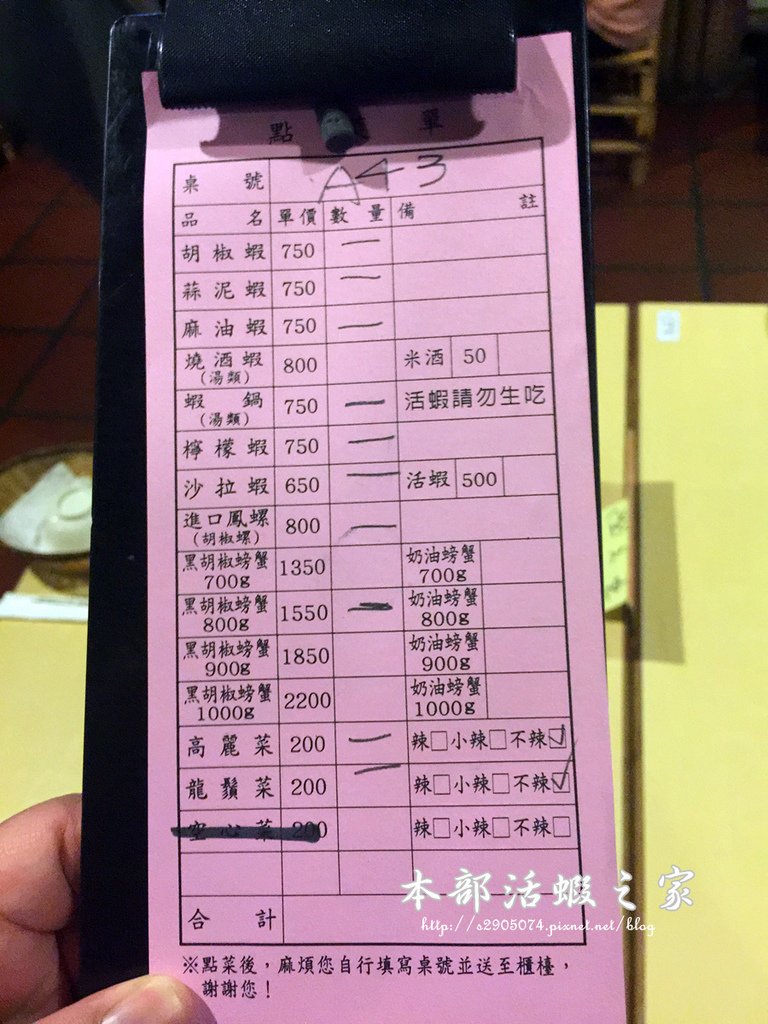 點 單
桌號 A43
品名 單價 數量 備註
胡椒蝦 750 一
蒜泥蝦 750 一
麻油蝦 750 一
燒酒蝦 800 米酒 50
(湯類)
蝦鍋 750 一 活蝦請勿生吃
(湯類)
檸檬蝦 750 一
沙拉蝦 650 一 活蝦 500
進口鳳螺 800 一
(胡椒螺)
黑胡椒螃蟹 1350 奶油螃蟹
700g 700g
黑胡椒螃蟹 1550 一 奶油螃蟹
800g 800g
黑胡椒螃蟹 1850 奶油螃蟹
900g 900g
黑胡椒螃蟹 2200 奶油螃蟹
1000g 1000g
高麗菜 200 一 辣□小辣□不辣☑
龍鬚菜 200 一 辣□小辣□不辣☑
空心菜 200 辣□小辣□不辣□
合計
※點菜後,麻煩您自行填寫桌號並送至櫃檯,
謝謝您!
本部活蝦之家
http://s2905074.pixnet.net/blog